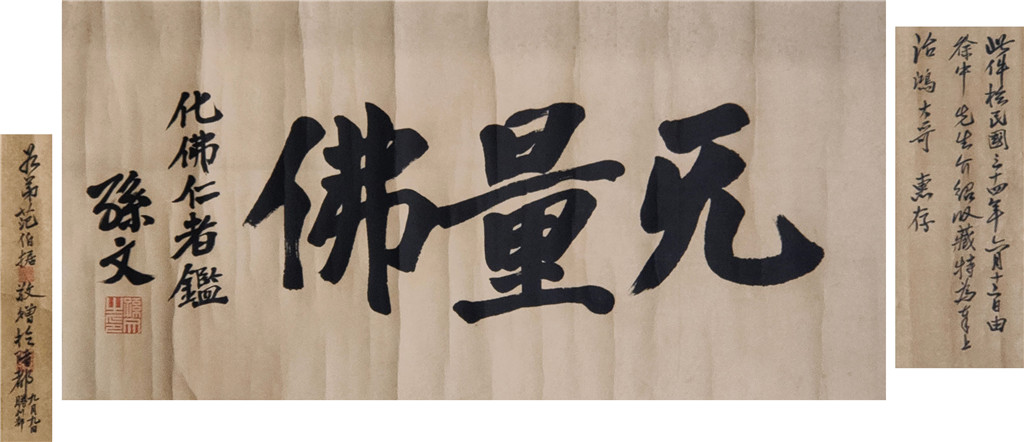 此件於民國三十四年六月十三日由
徐中先生介紹收藏特為奉上
治鴻大哥 惠存
无量佛
化佛仁者鑑
孫文
弟范伯据敬贈於陪都
九月九日
勝利